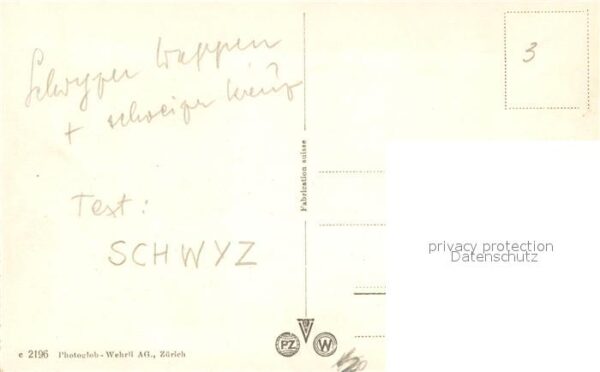 Schwyzer Wappen
+ schweizer Kreuz
3
Fabrication suisse
Text:
SCHWYZ
privacy protection
Datenschutz
PZ
W
e 2196 Photoglob-Wehrli AG., Zürich